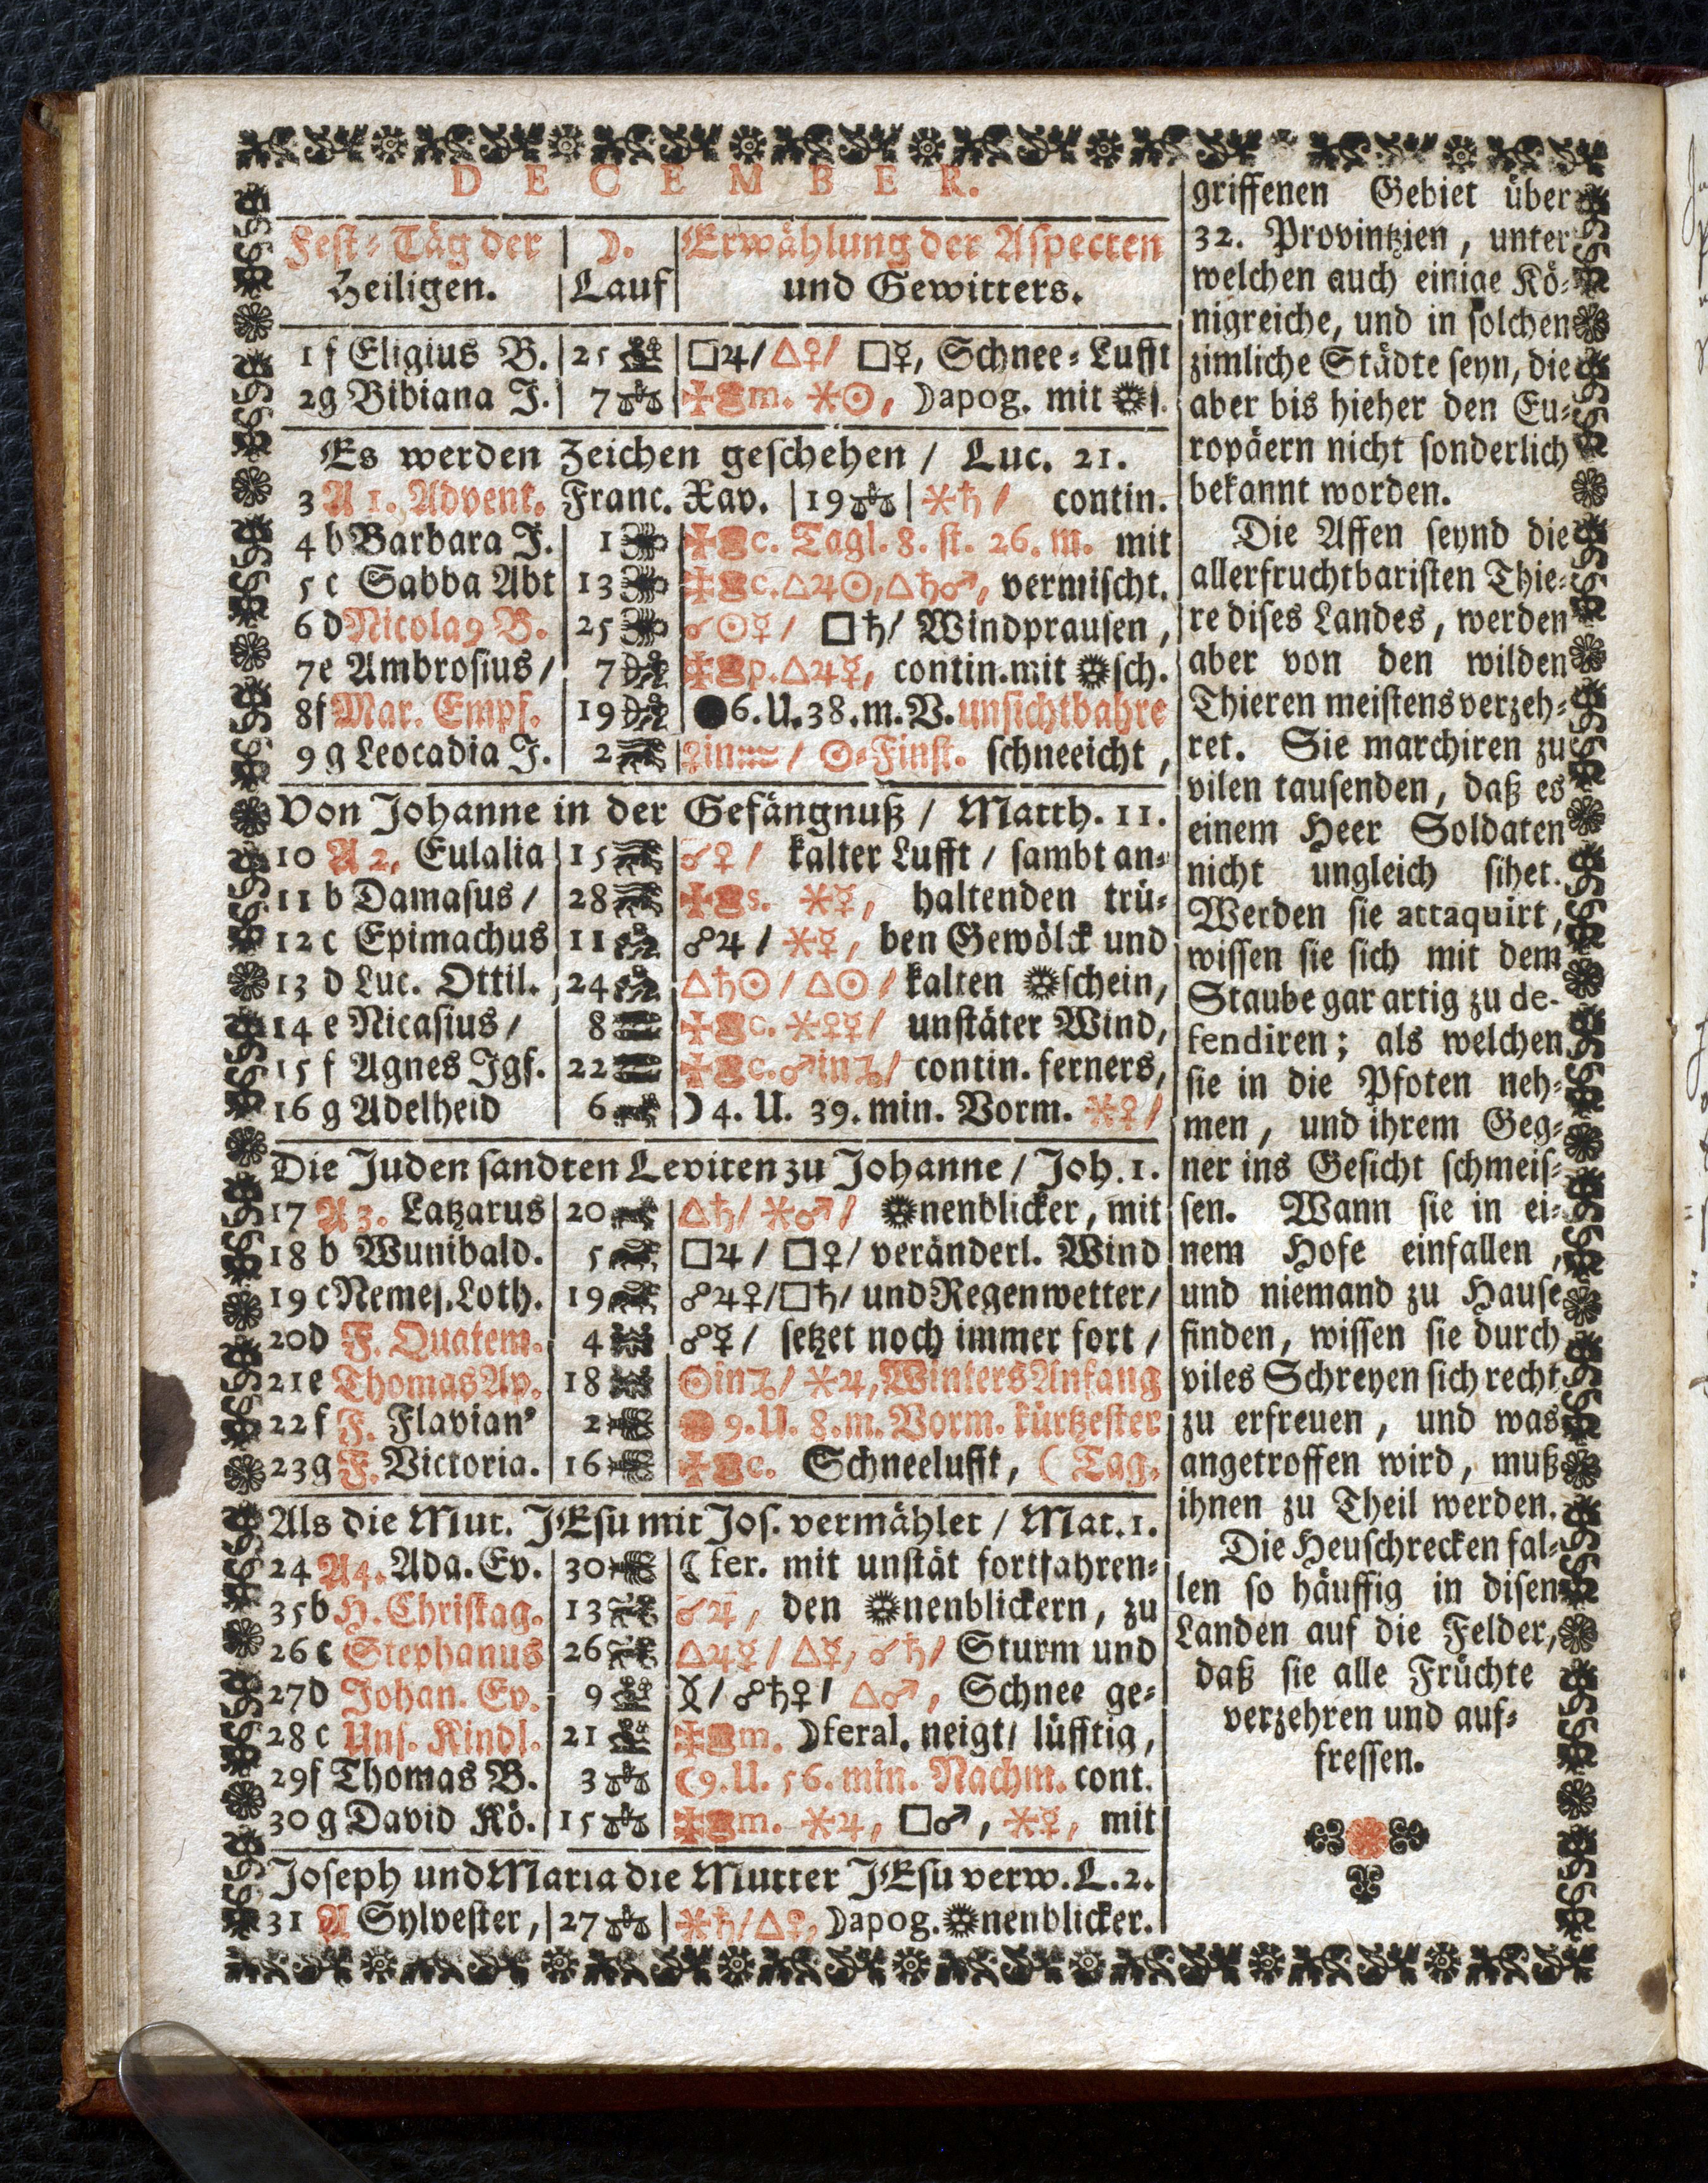 DECEMBER.
Fest-Täg der | ☽. | Erwählung der Aspecten
Heiligen. | Lauf | und Gewitters.
1 f Eligius B. | 25 | □♃/ △♀/ □☿, Schnee-Lufft
2 g Bibiana J. | 7 | m. ⚹☉, ☽apog. mit
Es werden Zeichen geschehen / Luc. 21.
3 A 1. Advent. Franc. Xav. | 19 | ⚹♄/ contin.
4 b Barbara J. | 1 | c. Tagl. 8. st. 26. m. mit
5 c Sabba Abt | 13 | c. △♃☉, △♄♂, vermischt.
6 d Nicola9 B. | 25 | ☌☉☿/ □♄/ Windprausen,
7 e Ambrosius / | 7 | p. △♃☿, contin. mit sch.
8 f Mar. Empf. | 19 | ●6. U. 38. m. V. unsichtbahre
9 g Leocadia J. | 2 | ♀in♒/ ☉-Finst. schneeicht,
Von Johanne in der Gefängnuß / Matth. 11.
10 A 2. Eulalia | 15 | ☌♀/ kalter Lufft / sambt an-
11 b Damasus / | 28 | s. ⚹☿, haltenden trü-
12 c Epimachus | 11 | ☍♃/ ⚹☿, ben Gewölck und
13 d Luc. Ottil. | 24 | △♄☉/ △☉/ kalten schein,
14 e Nicasius / | 8 | c. ⚹♀☿/ unstäter Wind,
15 f Agnes Jgf. | 22 | c. ♂in♑/ contin. ferners,
16 g Adelheid | 6 | ☽ 4. U. 39. min. Vorm. ⚹♀/
Die Juden sandten Leviten zu Johanne / Joh. 1.
17 A 3. Latzarus | 20 | △♄/ ⚹♂/ nenblicker, mit
18 b Wunibald. | 5 | □♃/ □♀/ veränderl. Wind
19 c Nemes. Loth. | 19 | ☍♃♀/□♄/ und Regenwetter/
20 d F. Quatem. | 4 | ☍☿/ setzet noch immer fort /
21 e Thomas Ap. | 18 | ☉in♑/ ⚹♃, Winters Anfang
22 f F. Flavian9 | 2 | 9. U. 8. m. Vorm. kürtzester
23 g F. Victoria. | 16 | c. Schneelufft, ( Tag.
Als die Mut. JEsu mit Jos. vermählet / Mat. 1.
24 A 4. Ada. Ev. | 30 | ☾ fer. mit unstät fortfahren-
35 b H. Christag. | 13 | ☌♃, den nenblickern, zu
26 c Stephanus | 26 | △♃☿/ △☿, ☌♄/ Sturm und
27 d Johan. Ev. | 9 | ☍♄♀/ △♂, Schnee ge-
28 c Uns. Kindl. | 21 | m. ☽feral. neigt/ lüfftig,
29 f Thomas B. | 3 | ☾9. U. 56. min. Nachm. cont.
30 g David Kö. | 15 | m. ⚹♃, □♂, ⚹☿, mit
Joseph und Maria die Mutter JEsu verw. L. 2.
31 A Sylvester, | 27 | ⚹♄/△♀, ☽apog. nenblicker.
griffenen Gebiet über
32. Provintzien, unter
welchen auch einige Kö-
nigreiche, und in solchen
zimliche Städte seyn, die
aber bis hieher den Eu-
ropäern nicht sonderlich
bekannt worden.
Die Affen seynd die
allerfruchtbaristen Thie-
re dises Landes, werden
aber von den wilden
Thieren meistens verzeh-
ret. Sie marchiren zu
vilen tausenden, daß es
einem Heer Soldaten
nicht ungleich sihet.
Werden sie attaquirt,
wissen sie sich mit dem
Staube gar artig zu de-
fendiren; als welchen
sie in die Pfoten neh-
men, und ihrem Geg-
ner ins Gesicht schmeis-
sen. Wann sie in ei-
nem Hofe einfallen,
und niemand zu Hause
finden, wissen sie durch
viles Schreyen sich recht
zu erfreuen, und was
angetroffen wird, muß
ihnen zu Theil werden.
Die Heuschrecken fal-
len so häuffig in disen
Landen auf die Felder,
daß sie alle Früchte
verzehren und auf-
fressen.